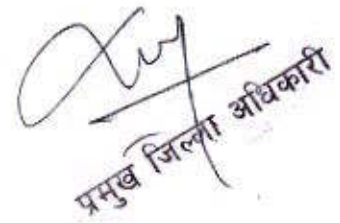 प्रमुख जिल्ला अधिकारी